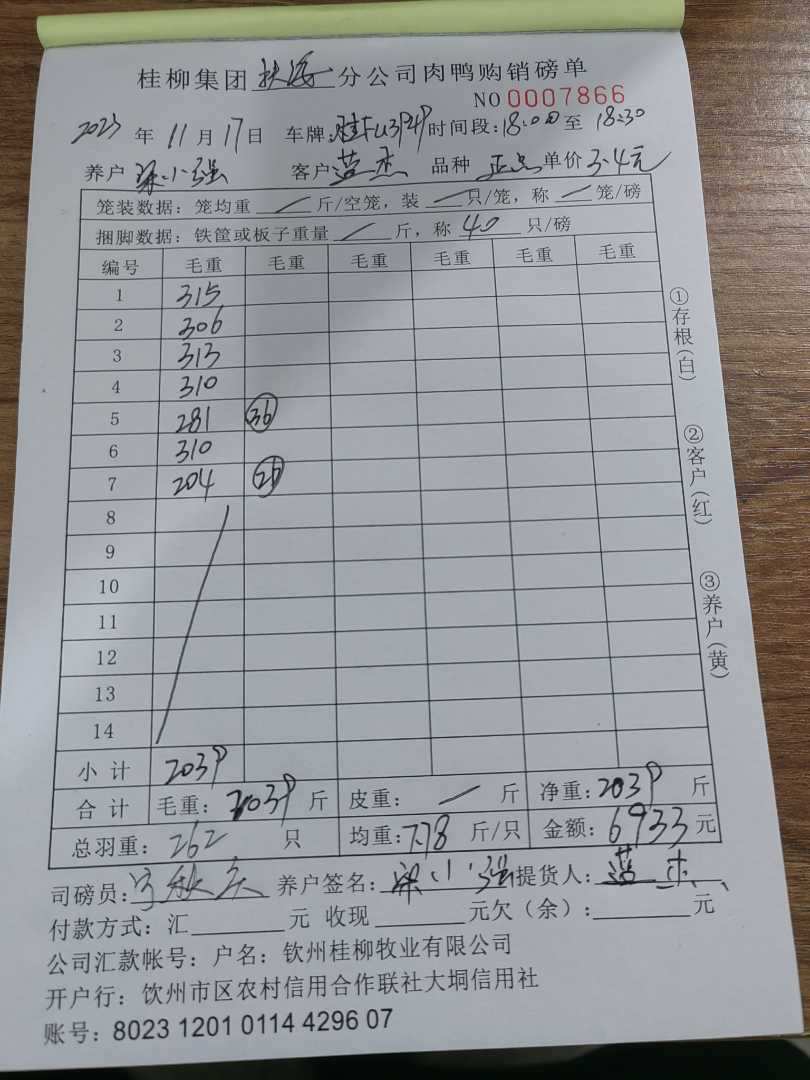 桂柳集团扶海分公司肉鸭购销磅单
NO 0007866
2023年11月17日 车牌: 时间段:18:00至18:30
养户梁小强 客户蓝杰 品种 正品 单价3.4元
笼装数据: 笼均重 / 斤/空笼, 装 / 只/笼, 称 / 笼/磅
捆脚数据: 铁筐或板子重量 / 斤, 称 40 只/磅
编号 毛重 毛重 毛重 毛重 毛重 毛重
1 315
2 306
3 313
4 310
5 281 36
6 310
7 204
8
9
10
11
12
13
14
小计 2039
合计 毛重: 2039斤 皮重: / 斤 净重: 2039斤
总羽重: 262 只 均重: 7.78斤/只 金额: 6933元
司磅员: 养户签名: 梁小强 提货人: 蓝杰
付款方式: 汇 元 收现 元欠(余): 元
公司汇款帐号: 户名: 钦州桂柳牧业有限公司
开户行: 饮州市区农村信用合作联社大垌信用社
账号: 8023 1201 0114 4296 07
①存根(白)
②客户(红)
③养户(黄)